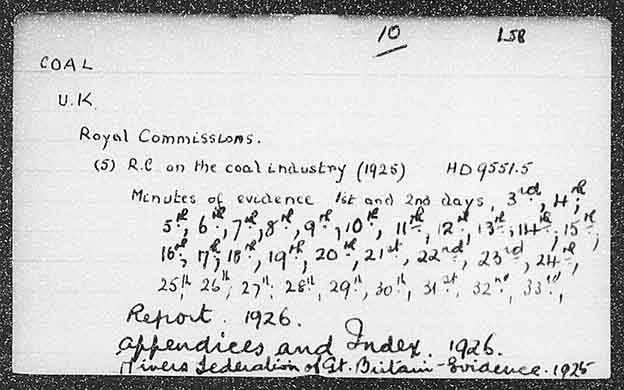 10 LSB
COAL
U.K.
Royal Commissions.
(5) R.C on the coal industry (1925) HD9551.5
Minutes of evidence 1st and 2nd days, 3rd, 4th,
5th, 6th, 7th, 8th, 9th, 10th, 11th, 12th, 13th, 14th, 15th,
16th, 17th, 18th, 19th, 20th, 21st, 22nd, 23rd, 24th,
25th, 26th, 27th, 28th, 29th, 30th, 31st, 32nd, 33rd,
Report. 1926.
Appendices and Index. 1926.
Miners Federation of Gt. Britain - Evidence. 1925